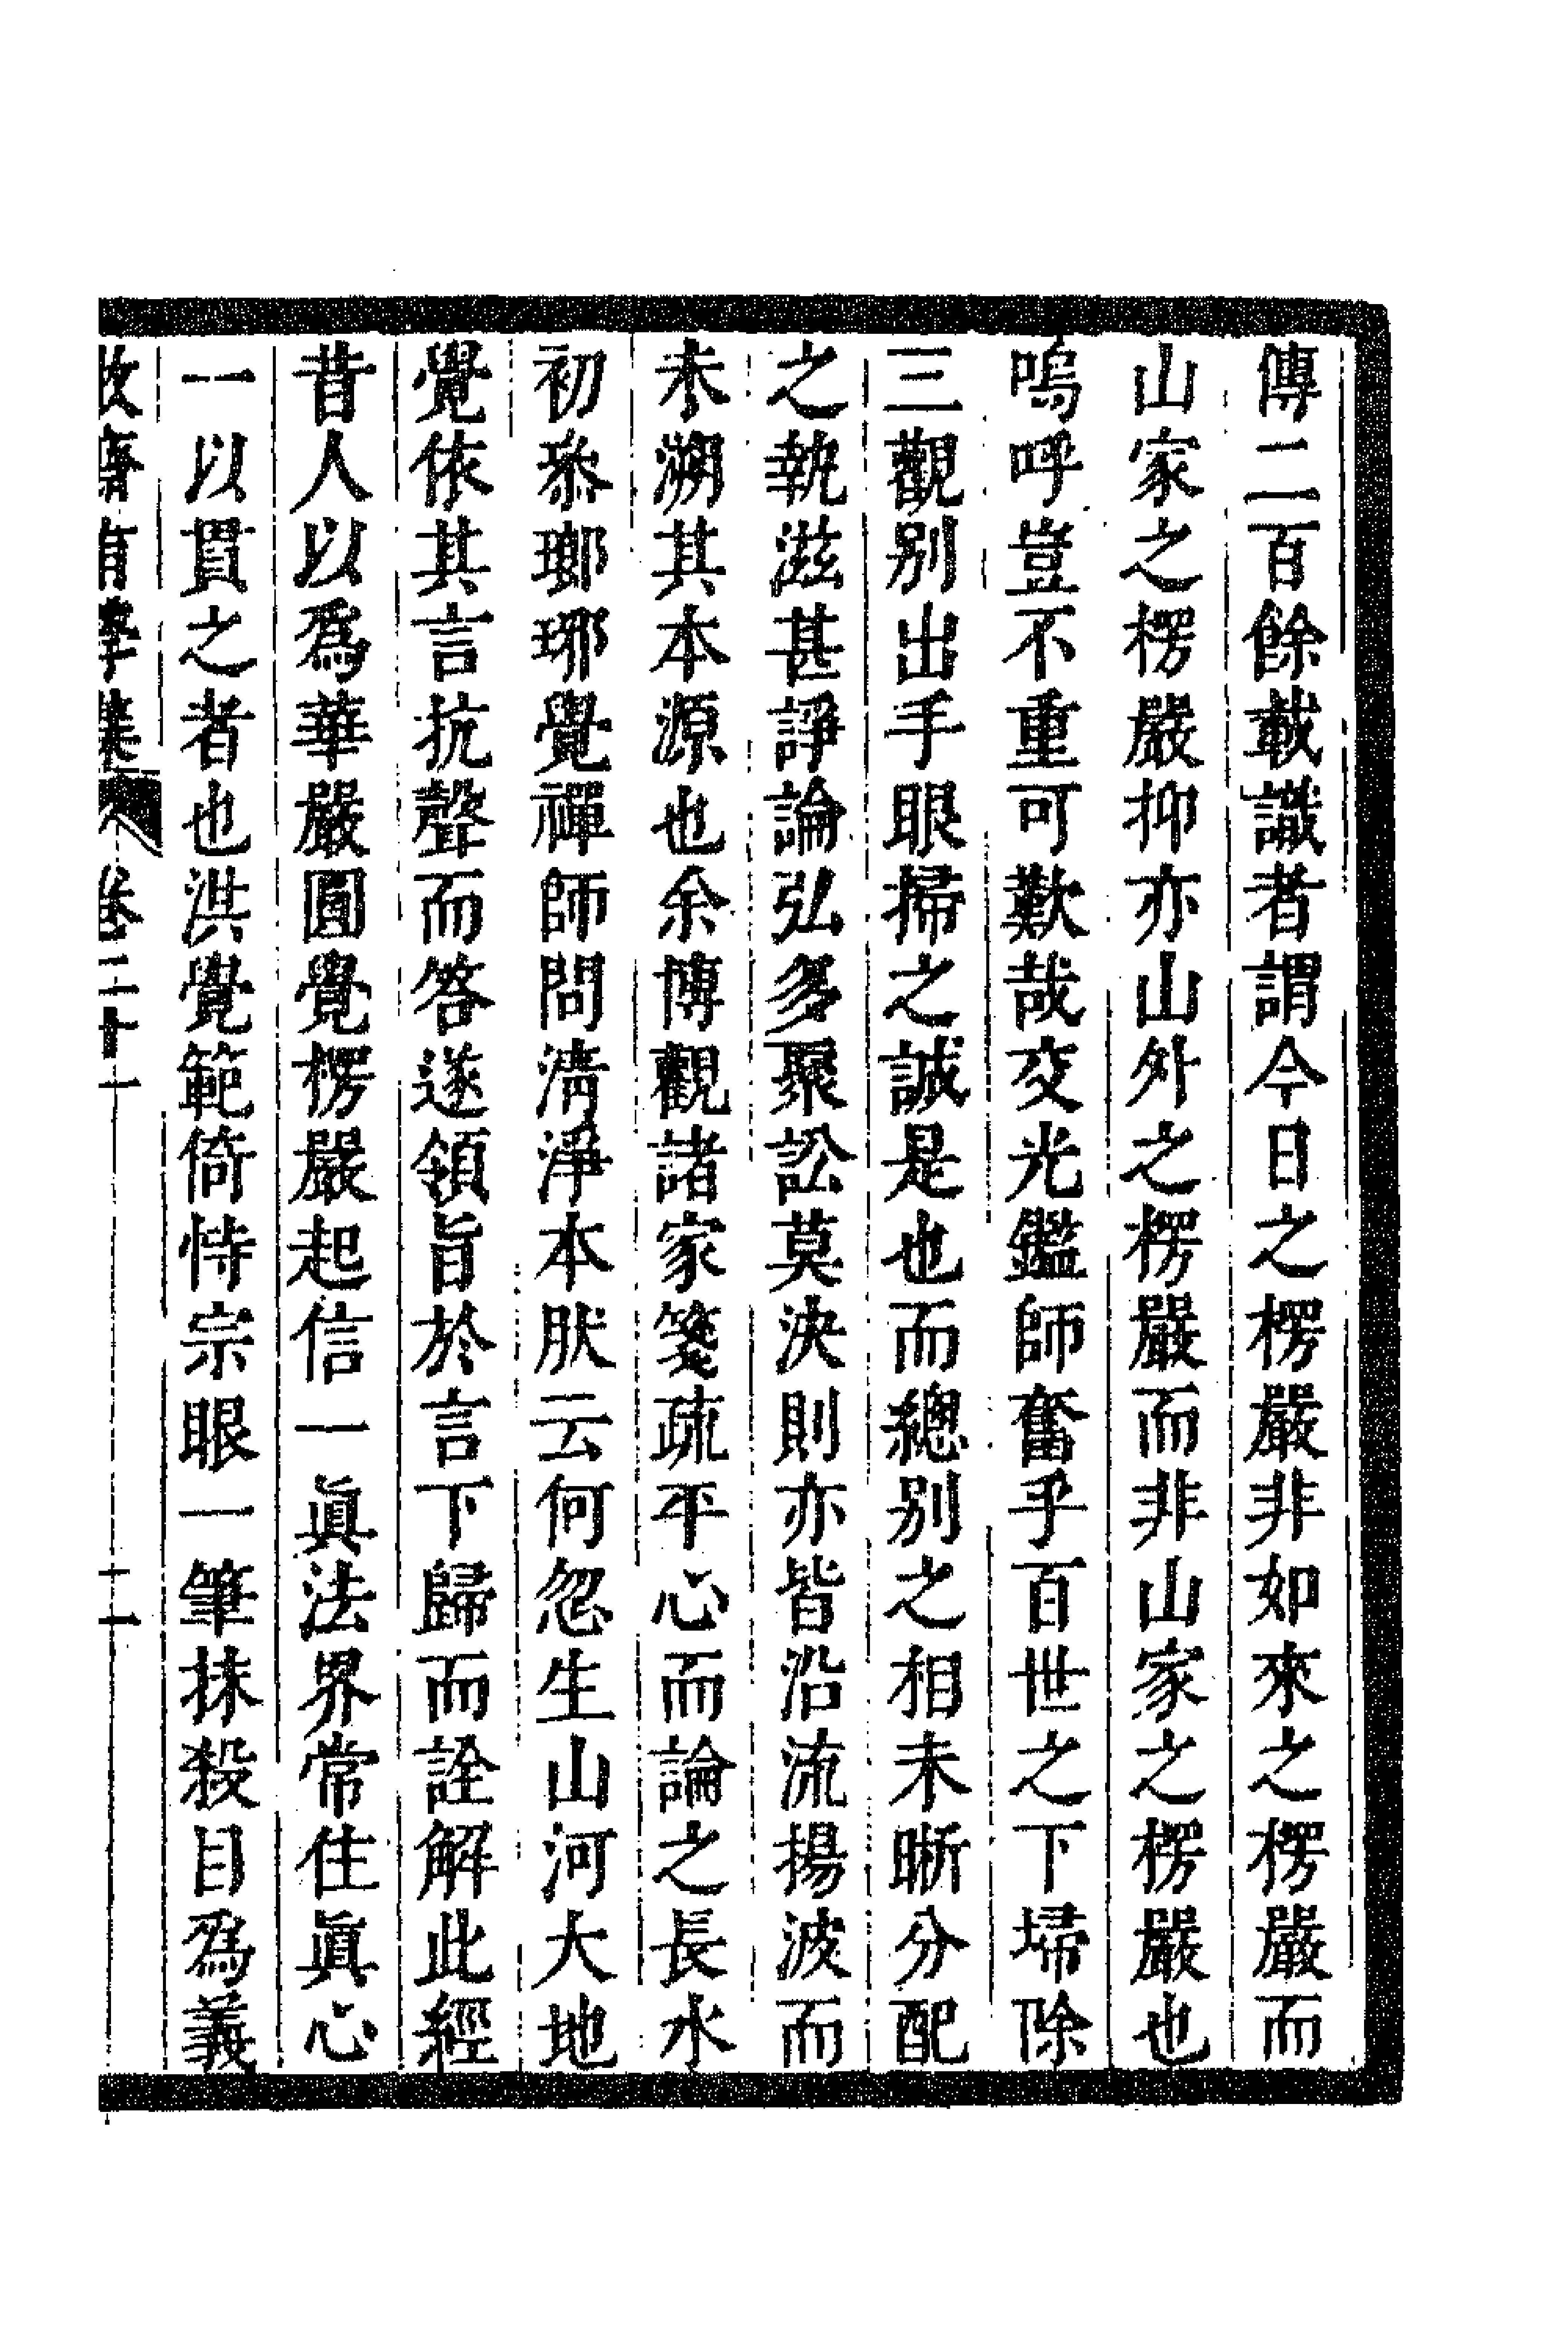 傳二百餘載識者謂今日之楞嚴非如來之楞嚴而
山家之楞嚴抑亦山外之楞嚴而非山家之楞嚴也
嗚呼豈不重可歎哉交光鑑師奮乎百世之下埽除
三觀别出手眼掃之誠是也而總别之相未晣分配
之執滋甚諍論弘多聚訟莫決則亦皆沿流揚波而
未溯其本源也余博觀諸家箋疏平心而論之長水
初叅瑯琊覺禪師問淸淨本肰云何忽生山河大地
覺依其言抗聲而答遂領旨於言下歸而詮解此經
昔人以爲華嚴圓覺楞嚴起信一眞法界常住眞心
一以貫之者也洪覺範倚恃宗眼一筆抹殺目爲義
牧齋有學集 卷二十一 十一